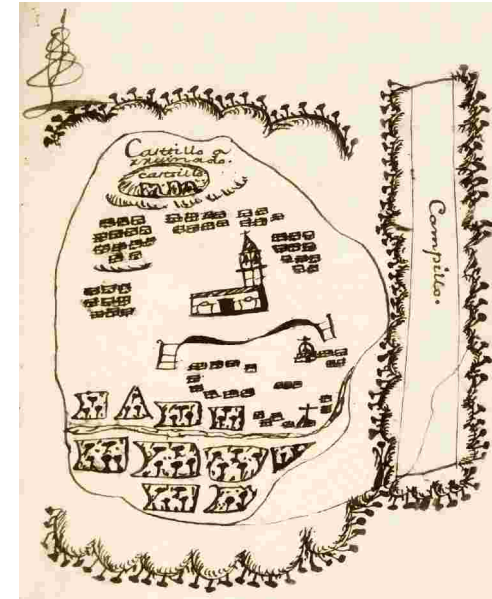 Castillo a
rruinado.
castillo
Campillo.